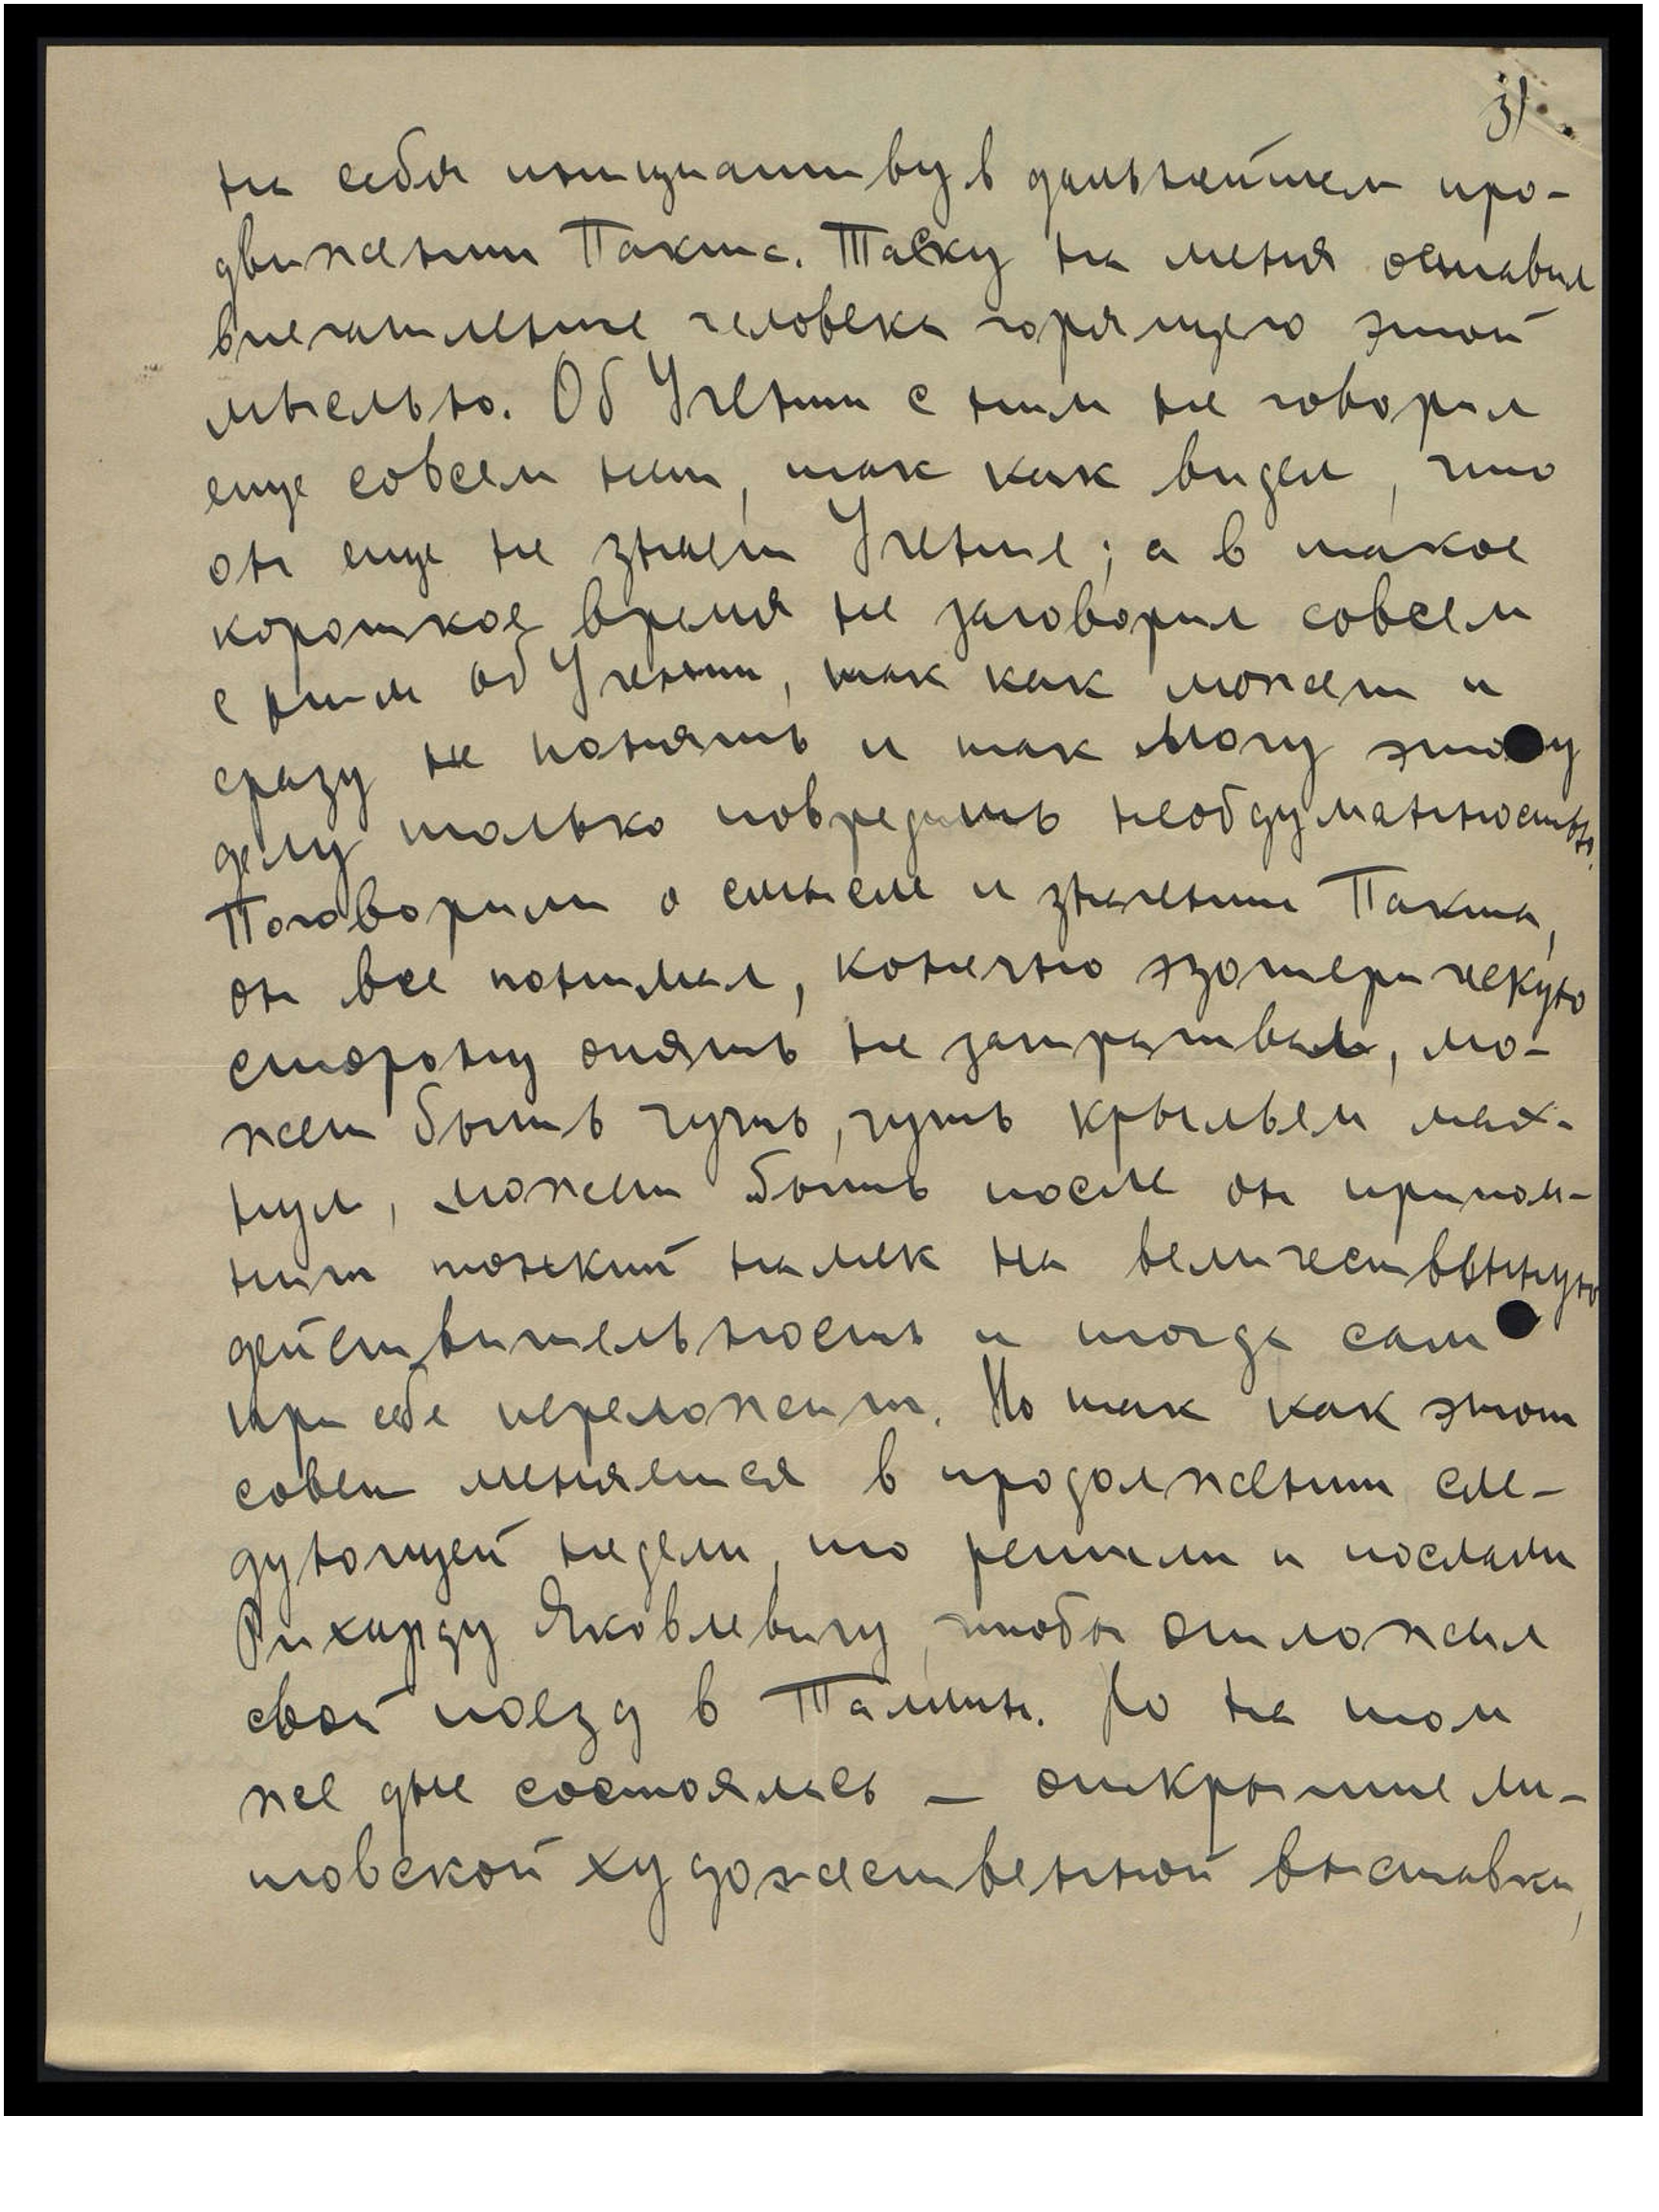 31.
на себя инициативу в дальнейшем про-
движении Пакта. Таску на меня оставил
впечатление человека горящего этой
мыслью. Об Учении с ним не говорил
еще совсем нет, так как видел, что
он еще не знает Учение; а в такое
короткое время не заговорил совсем
с ним об Учении, так как может и
сразу не понять и так могу этому
делу только повредить необдуманностью.
Поговорили о смысле и значении Пакта,
он все понимал, конечно эзотерическую
сторону опять не затрагивал, мо-
жет быть чуть, чуть крыльем мах-
нул, может быть после он припом-
нит тонкий намек на величественную
действительность и тогда сам
при себе переложит. Но так как этот
совет меняется в продолжении сле-
дующей недели, то решили и послали
Рихарду Яковлевичу, чтобы отложил
свой поезд в Таллин. Но на том
же дне состоялась — открытие ли-
товской художественной выставки,